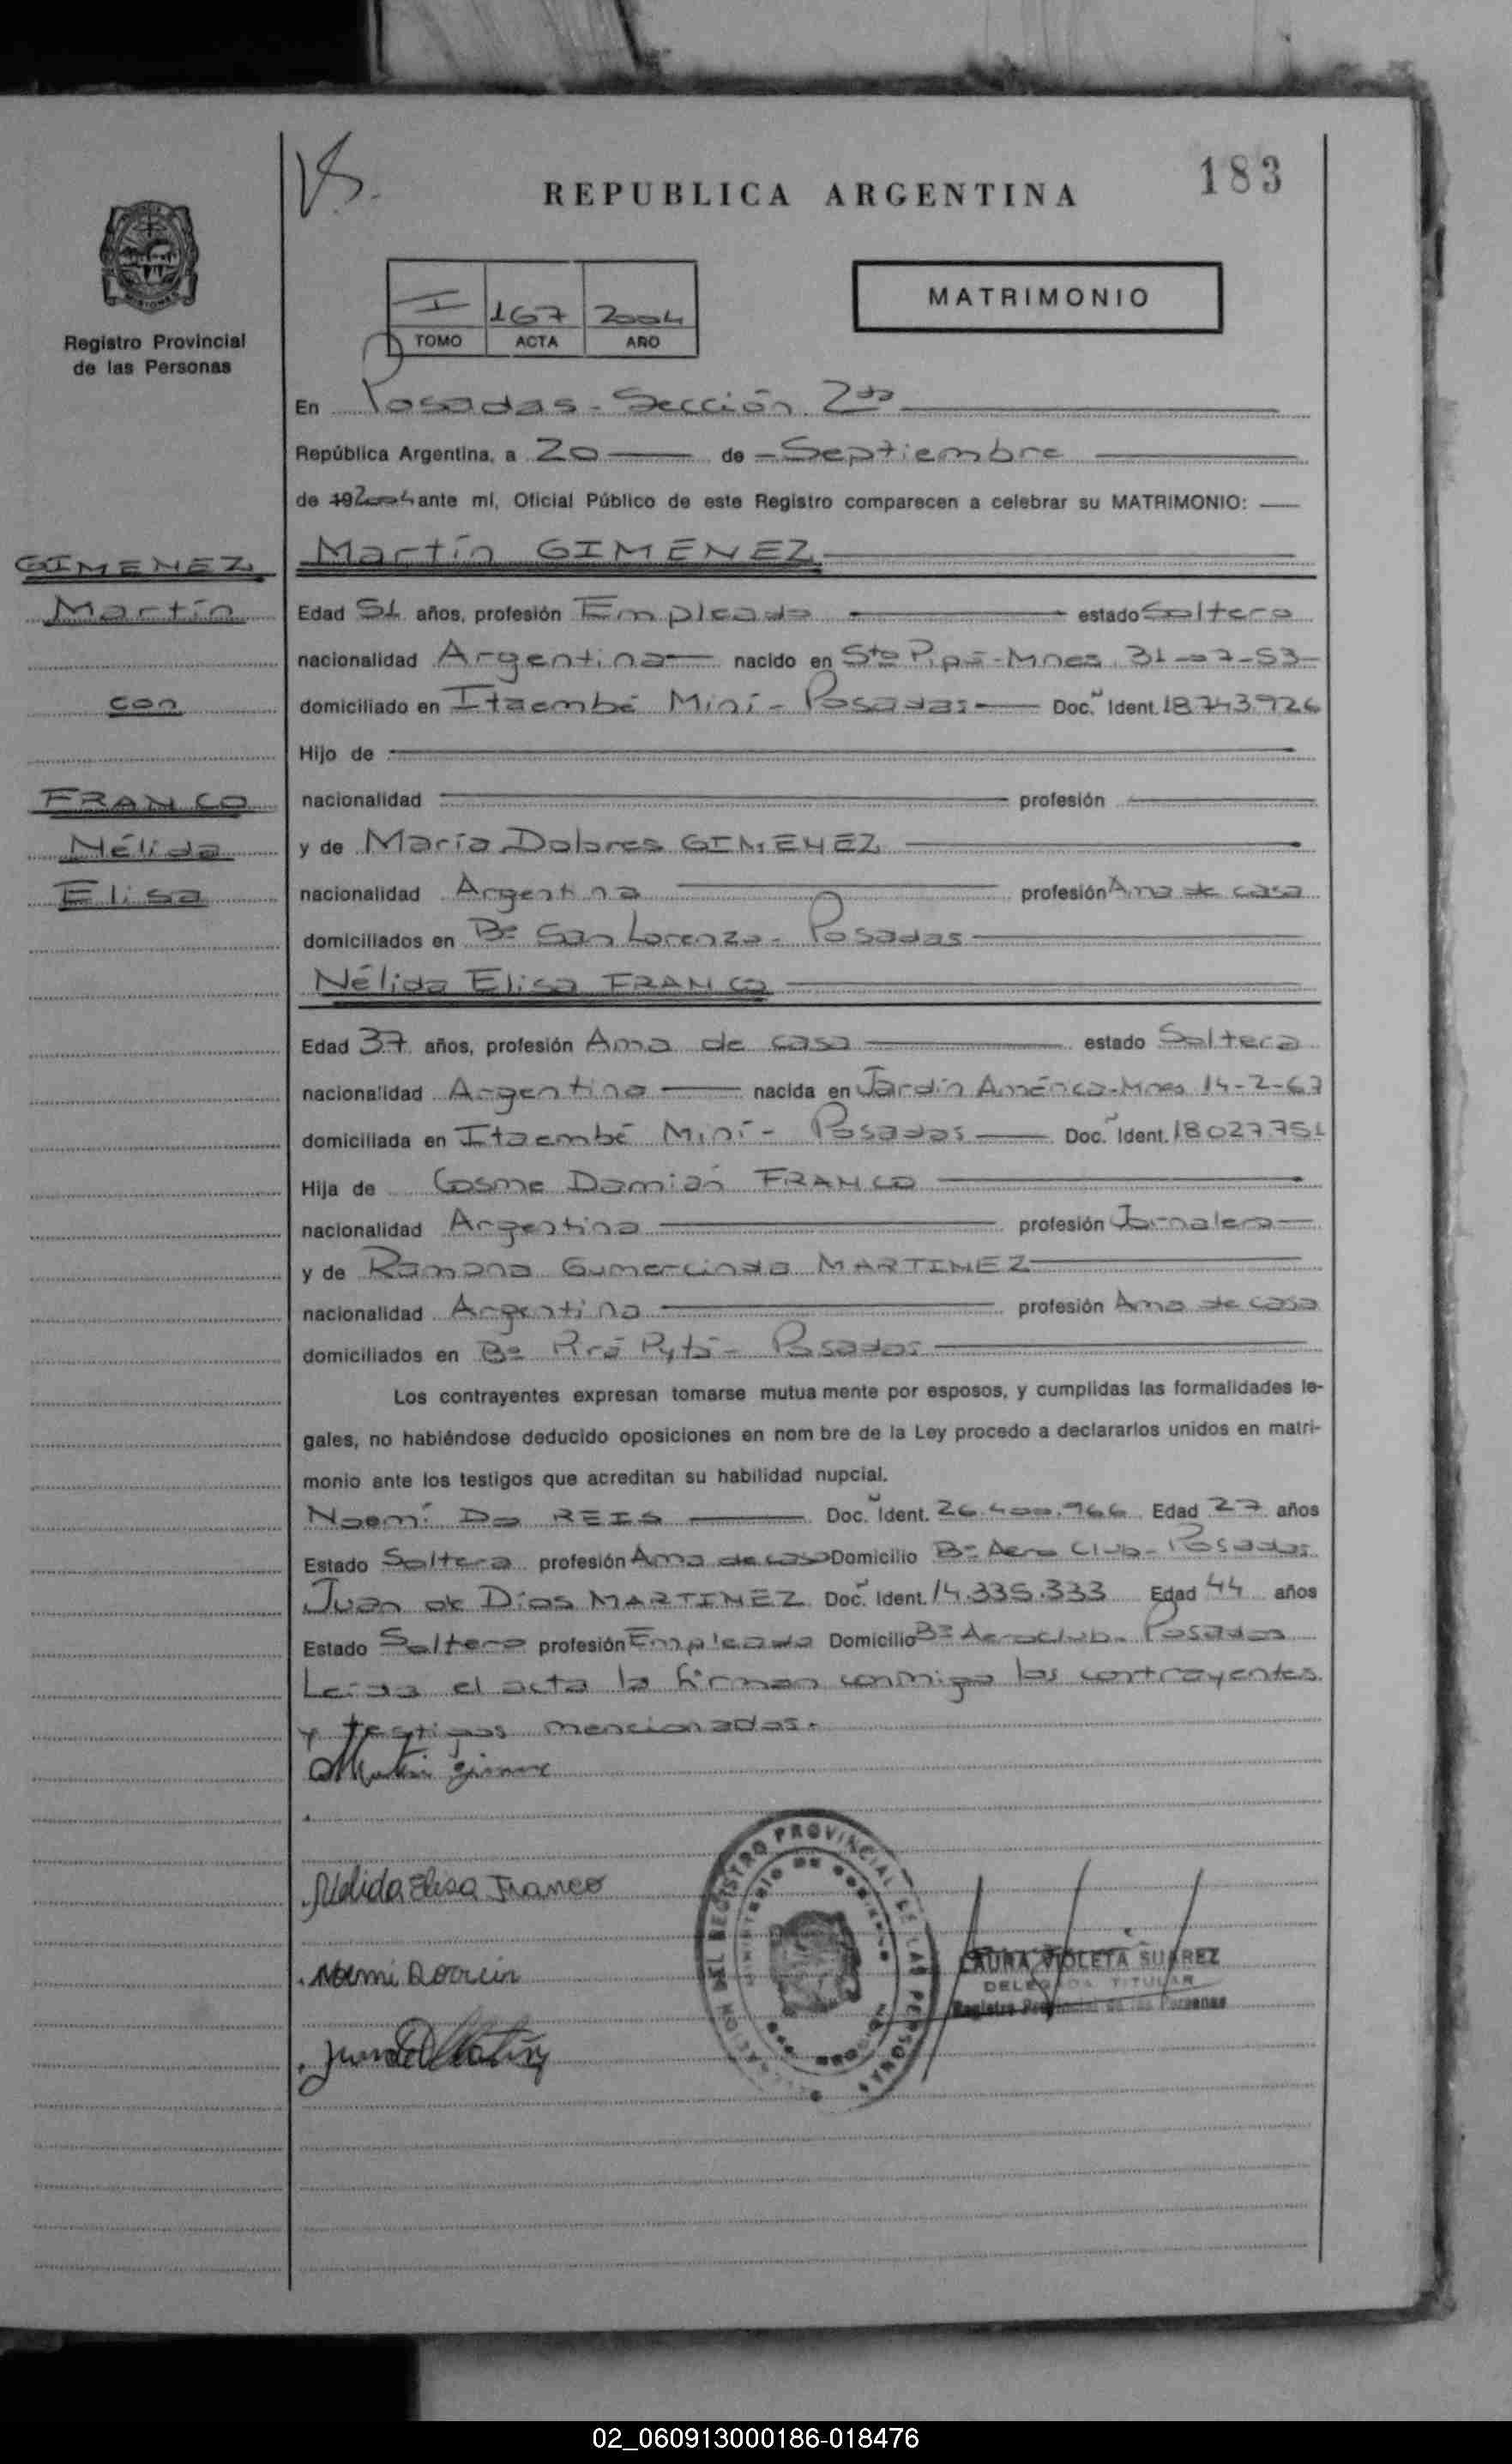 183
REPUBLICA ARGENTINA
MATRIMONIO
I 167 2004
TOMO ACTA AÑO
Registro Provincial
de las Personas
En Posadas - Sección 2da
República Argentina, a 20 de Septiembre
de 192004 ante mí, Oficial Público de este Registro comparecen a celebrar su MATRIMONIO:
GIMENEZ
Martín
con
FRANCO
Nélida
Elisa
Martín GIMENEZ
Edad 51 años, profesión Empleado estado Soltero
nacionalidad Argentina nacido en Sto Pipó - Mnes 31-07-53
domiciliado en Itaembé Miní - Posadas Doc. Ident. 18743926
Hijo de
nacionalidad profesión
y de María Dolores GIMENEZ
nacionalidad Argentina profesión Ama de casa
domiciliados en Bº San Lorenzo - Posadas
Nélida Elisa FRANCO
Edad 37 años, profesión Ama de casa estado Soltera
nacionalidad Argentina nacida en Jardín América - Mnes 14-2-67
domiciliada en Itaembé Miní - Posadas Doc. Ident. 18027751
Hija de Cosme Damián FRANCO
nacionalidad Argentina profesión Jornalero
y de Ramona Gumercinda MARTINEZ
nacionalidad Argentina profesión Ama de casa
domiciliados en Bº Pirá Pytá - Posadas
Los contrayentes expresan tomarse mutua mente por esposos, y cumplidas las formalidades le-
gales, no habiéndose deducido oposiciones en nom bre de la Ley procedo a declararlos unidos en matri-
monio ante los testigos que acreditan su habilidad nupcial.
Noemí Do REIS Doc. Ident. 26.400.966 Edad 27 años
Estado Soltera profesión Ama de casa Domicilio Bº Aero Club - Posadas
Juan de Dios MARTINEZ Doc. Ident. 14.335.333 Edad 44 años
Estado Soltero profesión Empleado Domicilio Bº Aeroclub - Posadas
Leída el acta la firman conmigo los contrayentes
y testigos mencionados.
Martin Gimenez
Nelida Elisa Franco
REGISTRO PROVINCIAL DE LAS PERSONAS
LAURA VIOLETA SUAREZ
DELEGADA TITULAR
Registro Provincial de las Personas
02_060913000186-018476